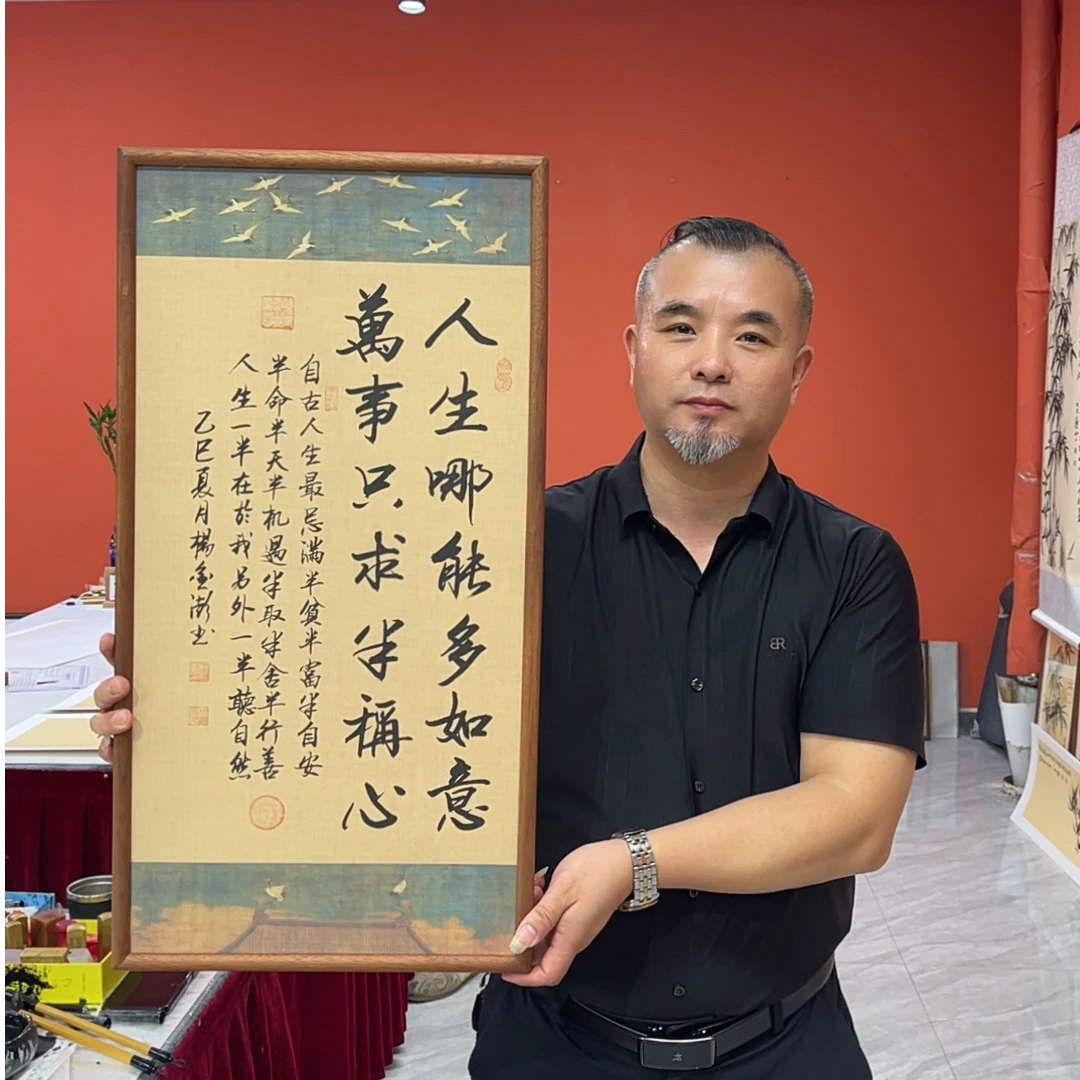 人生哪能多如意
萬事只求半稱心
自古人生最忌滿半貧半富半自安
半命半天半机遇半取半舍半行善
人生一半在於我另外一半聽自然
乙巳夏月楊金澎书
BR